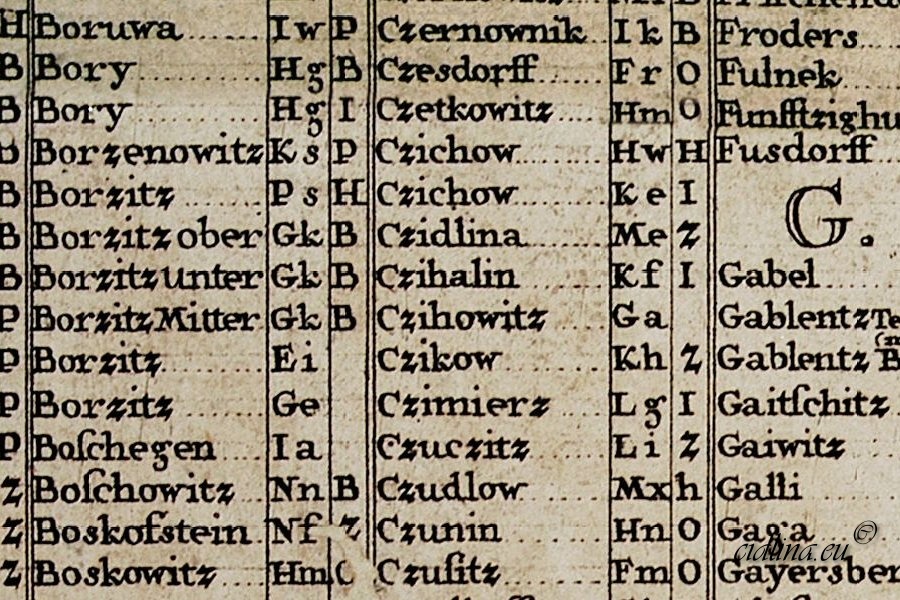 H Boruwa Iw P Czernownik Ik B Froders
B Bory Hg B Czesdorff Fr O Fulnek
B Bory Hg I Czetkowitz Hm O
B Borzenowitz Ks P Czichow Hw H Fusdorff
B Borzitz Ps H Czichow Ke I G.
B Borzitz ober Gk B Czidlina Me Z
B Borzitz unter Gk B Czihalin Kf I Gabel
P Borzitz Mitter Gk B Czihowitz Ga Gablentz
P Borzitz Ei Czikow Kh Z Gablentz
P Borzitz Ge Czimierz Lg I Gaitſchitz
P Boſchegen Ia Czuczitz Li Z Gaiwitz
Z Boſchowitz Nn B Czudlow Mx h Galli
Z Boskofstein Nf Z Czunin Hn O Gaga
Z Boskowitz Hm Czuſitz Fm O
©
cidlina.eu